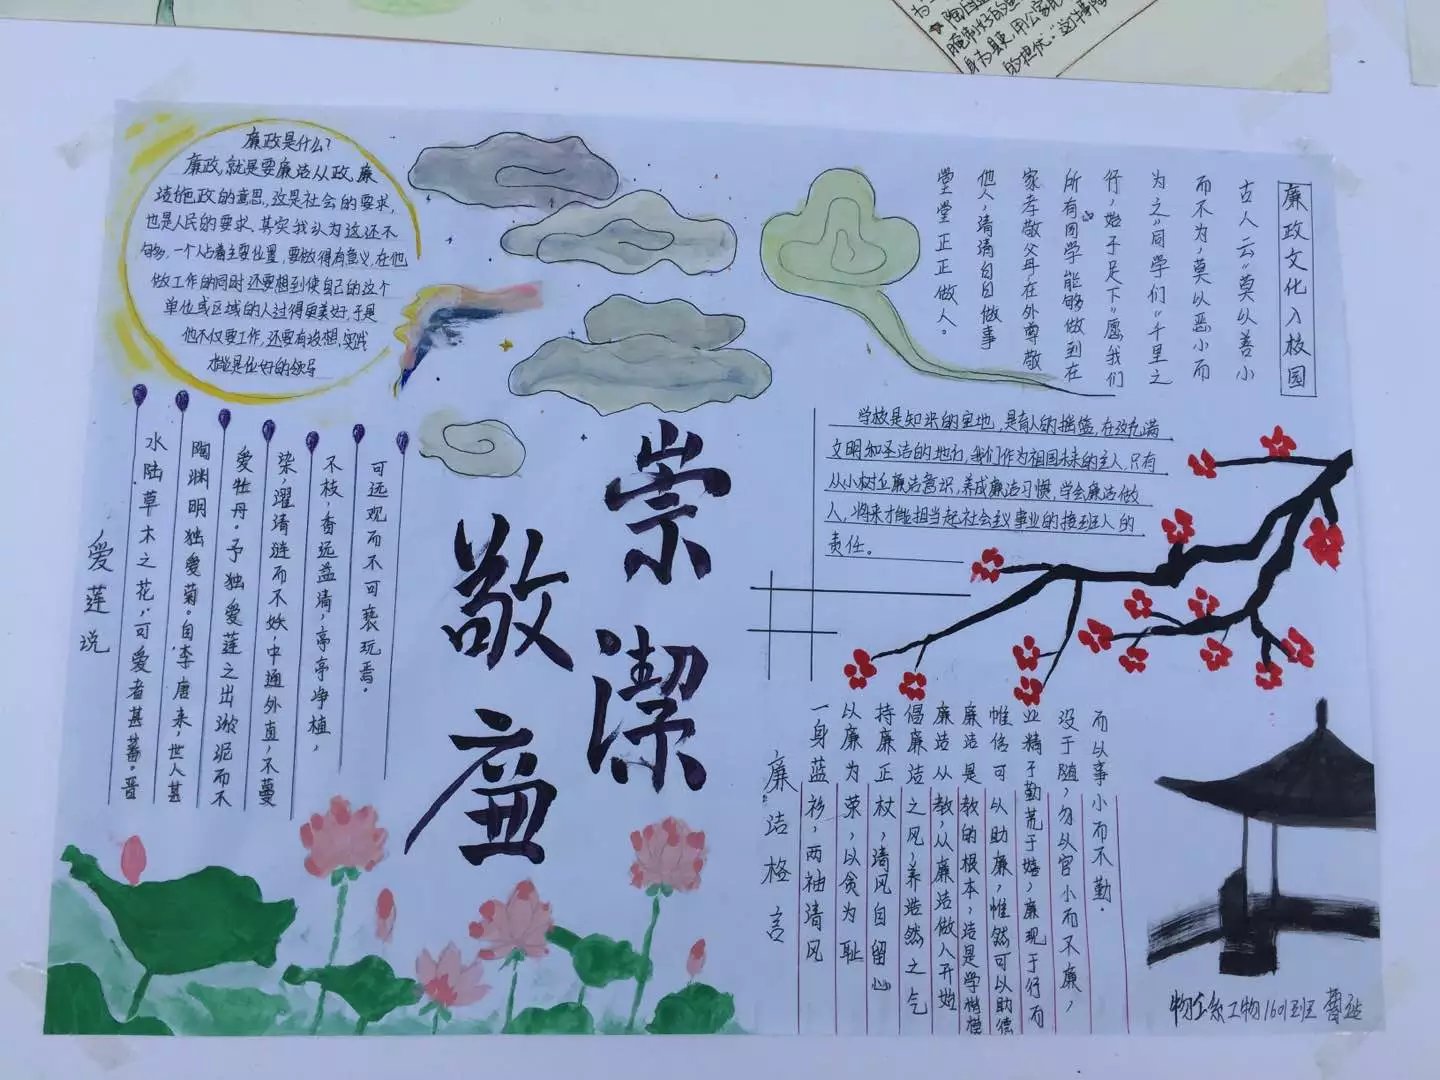 廉政是什么?
廉政,就是要廉洁从政,廉
洁施政的意思,这是社会的要求,
也是人民的要求,其实我认为这还不
够多,一个人占着主要位置,要做得有意义,在他
做工作的同时还要想到使自己的这个
单位或区域的人过得更美好,于是
他不仅要工作,还要有设想,实践
才能是位好的领导
崇潔
敬廉
廉政文化入校园
古人云“莫以善小
而不为,莫以恶小而
为之”同学们“千里之
行,始于足下”愿我们
所有同学能够做到在
家孝敬父母在外尊敬
他人,清清白白做事
堂堂正正做人。
学校是知识的宝地,是育人的摇篮,在这充满
文明和圣洁的地方,我们作为祖国未来的主人,只有
从小树立廉洁意识,养成廉洁习惯,学会廉洁做
人,将来才能担当起社会主义事业的接班人的
责任。
爱莲说
水陆草木之花,可爱者甚蕃。晋
陶渊明独爱菊。自李唐来,世人甚
爱牡丹。予独爱莲之出淤泥而不
染,濯清涟而不妖,中通外直,不蔓
不枝,香远益清,亭亭净植,
可远观而不可亵玩焉。
廉洁格言
一身蓝衫,两袖清风
以廉为荣,以贪为耻
持廉正杖,清风自留心
倡廉洁之风,养浩然之气
廉洁从教,从廉洁做人开始
廉洁是教的根本,洁是学楷模
惟俭可以助廉,惟然可以助德
业精于勤荒于嬉,廉现于行而
没于随,勿以官小而不廉,
而以事小而不勤.
物工系工物1601班